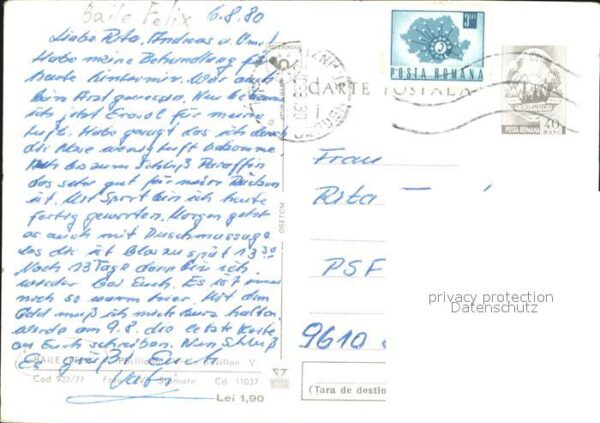 Baile Felix 6.8.80
Liebe Rita, Andreas u. Omi!
Habe meine Behandlung für
heute hinter mir. War auch
beim Arzt gewesen. Nun bekomme
ich jetzt für meine
Luft. Habe gesagt das ich durch
die Nase wenig Luft bekomme.
Noch bis zum Schluß Paraffin
das sehr gut für meinen Rücken
ist. Mit Sport bin ich heute
fertig geworden. Morgen geht
es auch mit Duschmassage
los die ist bloß zu spät 13 30
Noch 13 Tage dann bin ich
wieder bei Euch. Es ist immer
noch so warm hier. Mit dem
Geld muß ich mich kurz halten.
werde am 9.8. die letzte Karte
an Euch schreiben. Nun Schluß
Es grüßt Euch
Vati
BAILE FELIX Pavilion V.
Cod 922/77 Foto Stamate Cd 11037
Lei 1,90
OSETOM
3 LEI
POSTA ROMANA
CARTE POSTALA
POSTA ROMANA 40 BANI
Frau
Rita
PSF
9610
(Țara de destin
privacy protection
Datenschutz